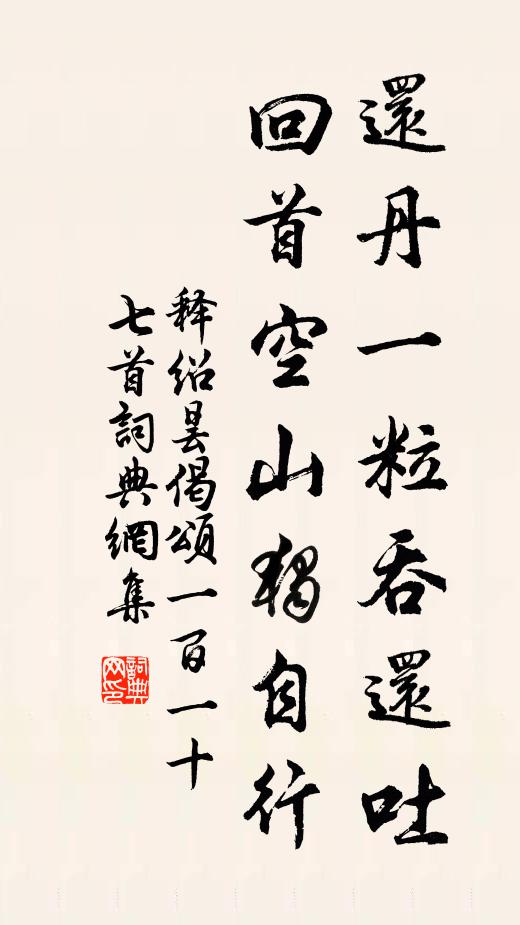 還丹一粒吞還吐
回首空山獨自行
释紹曇偈頌一百一十
七首詞典網集
詞典网印